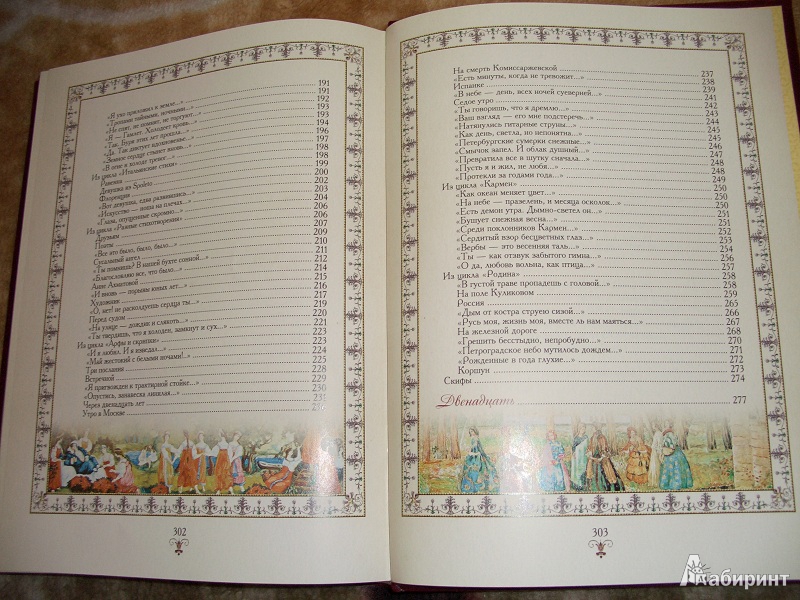 «Я ухо приложил к земле...» 191
«Тропами тайными, ночными...» 191
«Не спят, не помнят, не торгуют...» 192
«Я — Гамлет. Холодеет кровь...» 193
«Так. Буря этих лет прошла...» 193
«Да. Так диктует вдохновенье...» 194
«Земное сердце стынет вновь...» 196
«В огне и холоде тревог...» 197
Из цикла «Итальянские стихи» 198
Равенна 198
Девушка из Spoleto 199
Флоренция 200
«Вот девушка, едва развившись...» 202
«Искусство — ноша на плечах...» 203
«Глаза, опущенные скромно...» 204
Из цикла «Разные стихотворения» 206
Друзьям 206
Поэты 207
«Все это было, было, было...» 209
Сусальный ангел 210
«Ты помнишь? В нашей бухте сонной...» 211
«Благословляю все, что было...» 212
Анне Ахматовой 214
«И вновь — порывы юных лет...» 215
Художник 216
«О, нет! не расколдуешь сердца ты...» 217
Перед судом 219
«На улице — дождик и слякоть...» 220
«Ты твердишь, что я холоден, замкнут и сух...» 221
Из цикла «Арфы и скрипки» 223
«И я любил. И я изведал...» 223
«Май жестокий с белыми ночами!...» 224
Три послания 225
Встречной 228
«Я пригвожден к трактирной стойке...» 229
«Опустись, занавеска линялая...» 230
Через двенадцать лет 231
Утро в Москве
302
На смерть Комиссаржевской 237
«Есть минуты, когда не тревожит...» 238
Испанке 238
«В небе — день, всех ночей суеверней...» 239
Седое утро 241
«Ты говоришь, что я дремлю...» 242
«Ваш взгляд — его мне подстеречь...» 243
«Натянулись гитарные струны...» 244
«Как день, светла, но непонятна...» 245
«Петербургские сумерки снежные... 245
«Смычок запел. И облак душный...» 246
«Превратила все в шутку сначала...» 247
«Пусть я и жил, не любя...» 248
«Протекли за годами года...» 248
Из цикла «Кармен» 249
«Как океан меняет цвет...» 250
«На небе — празелень, и месяца осколок...» 250
«Есть демон утра. Дымно-светел он...» 250
«Бушует снежная весна...» 251
«Среди поклонников Кармен...» 251
«Сердитый взор бесцветных глаз...» 252
«Вербы — это весенняя таль...» 253
«Ты — как отзвук забытого гимна... 254
«О да, любовь вольна, как птица...» 256
Из цикла «Родина» 257
«В густой траве пропадешь с головой...» 258
На поле Куликовом 259
Россия 265
«Дым от костра струею сизой...» 266
«Русь моя, жизнь моя, вместе ль нам маяться...» 267
На железной дороге 268
«Грешить бесстыдно, непробудно...» 270
«Петроградское небо мутилось дождем...» 271
«Рожденные в года глухие...» 272
Коршун 273
Скифы 274
Двенадцать 277
303
Лабиринт